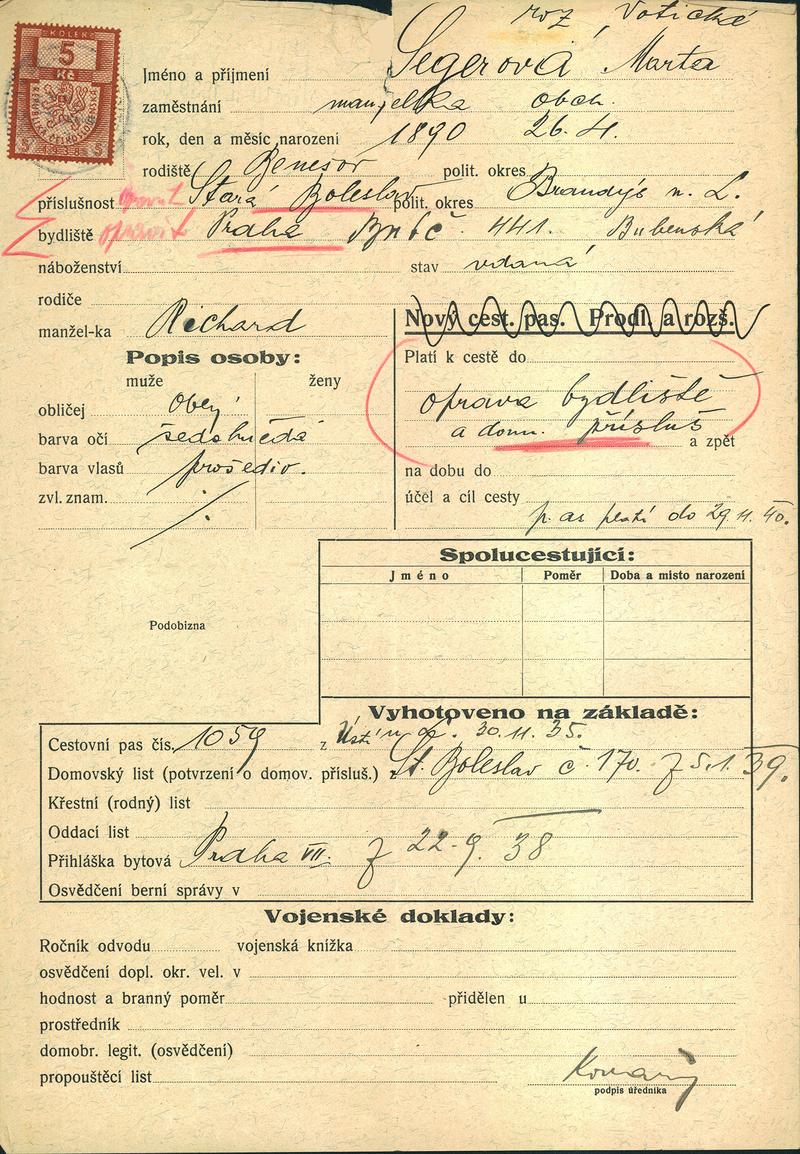 roz. Votické
KOLEK
5
Kč
Jméno a příjmení Segerová Marta
zaměstnání manželka obch.
rok, den a měsíc narození 1890 26.4.
rodiště Benešov polit. okres
příslušnost Stará Boleslav polit. okres Brandýs n. L.
bydliště opravit Praha 441. Bubenská
náboženství stav vdaná
rodiče
manžel-ka Richard
Nový cest. pas. Prodl. a rozš.
Popis osoby:
Platí k cestě do
muže ženy
obličej oblý
oprava bydliště
barva očí šedohnědá
a dom. přísluš
a zpět
barva vlasů prošediv.
na dobu do
zvl. znam.
účel a cíl cesty
p. as platí do 29.11.40.
Spolucestující:
Jméno Poměr Doba a místo narození
Podobizna
Vyhotoveno na základě:
Cestovní pas čís. 1059 z 30.11.35.
Domovský list (potvrzení o domov. přísluš.) z St. Boleslav č. 170. z 5.1.39.
Křestní (rodný) list
Oddací list
Přihláška bytová Praha VII. z 22.9.38
Osvědčení berní správy v
Vojenské doklady:
Ročník odvodu vojenská knížka
osvědčení dopl. okr. vel. v
hodnost a branný poměr přidělen u
prostředník
domobr. legit. (osvědčení)
propouštěcí list
podpis úředníka